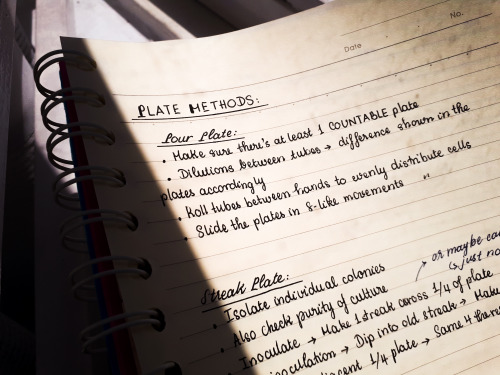 No.
Date
PLATE METHODS:
Pour Plate:
• Make sure there's at least 1 COUNTABLE plate
• Dilutions between tubes → difference shown in the
plates accordingly
• Roll tubes between hands to evenly distribute cells
• Slide the plates in 8-like movements "
Streak Plate:
• Isolate individual colonies
• Also check purity of culture
→ or maybe
↳ just
• Inoculate → Make 1 streak across 1/4 of plate
inoculation → Dip into old streak → Make
1/4 plate → Same 4